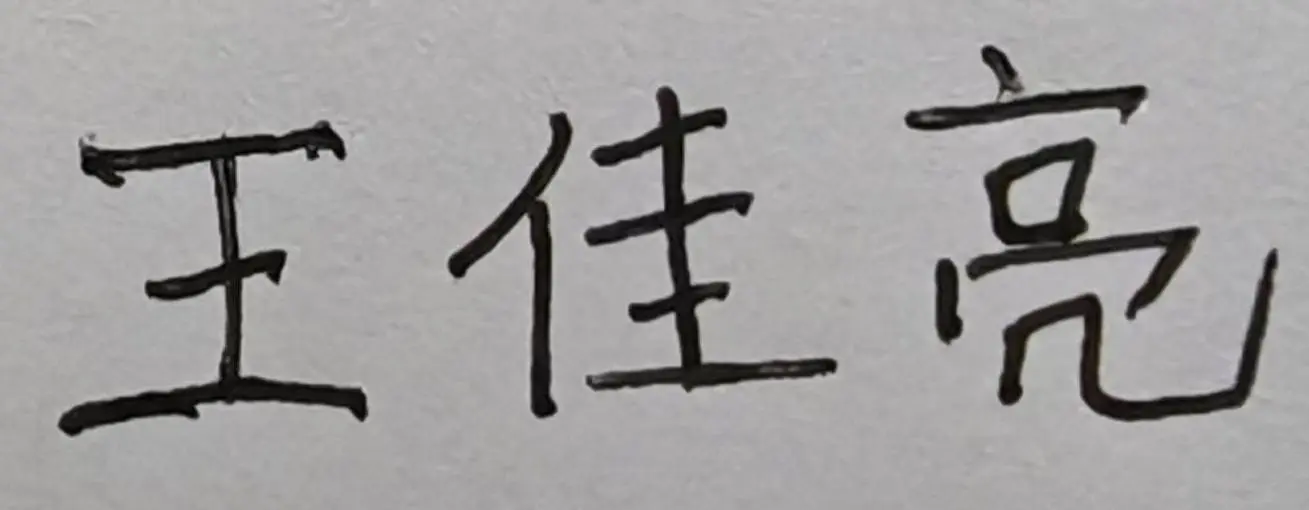 王佳亮